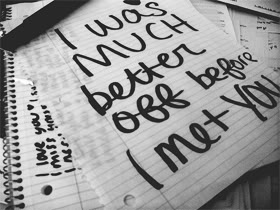 I was
MUCH
better
off before
I met YOU
I love you
I miss
I